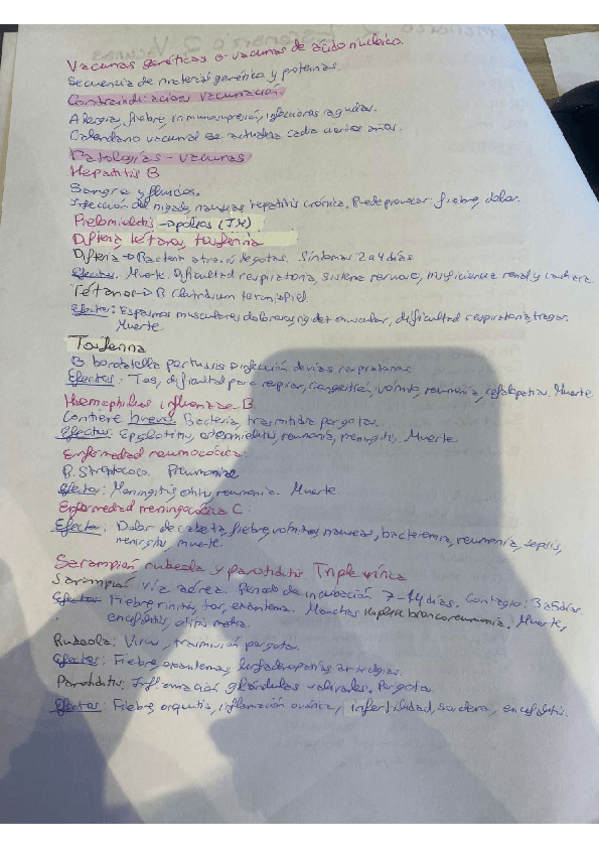 Vacunas genéticas o vacunas de ácido nucleico.
Secuencia de material genético y proteínas.
Contraindicación vacunación
Alergia, fiebre, inmunosupresión, infecciones agudas.
Calendario vacunal se actualiza cada ciertos años.
Patologías - vacunas
Hepatitis B
Sangre y fluidos.
Infección del hígado, nauseas, hepatitis crónica. Puede provocar: fiebre, dolor.
Pielomielitis → polios
Difteria, tétanos, tosferina
Difteria → Bacteria atraves de gotas. Síntomas 2 a 4 días
Efectos: Muerte. Dificultad respiratoria, sistema nervioso, insuficiencia renal y cardiaca.
Tétanos → B Clostridium
Efectos: Espasmos musculares dolorosos, rigidez muscular, dificultad respiratoria, tragar.
Muerte
Tosferina
B. bordatella pertussis → infección de vías respiratorias
Efectos: Tos, dificultad para respirar, congestión, vómito, neumonía, Muerte
Haemophilus influenzae B
Contiene huevo. Bacteria, trasmitida por gotas.
Efectos: osteomielitis, neumonía, meningitis. Muerte
Enfermedad neumocócica:
B. Streptococo Pneumoniae
Efectos: Meningitis, otitis, neumonía. Muerte
Enfermedad meningocócica C
Efectos: Dolor de cabeza, fiebre, vómitos, nauseas, bacteremia, neumonía, sepsis,
meningitis muerte.
Sarampión rubeola y parotiditis Triple vírica
Sarampión vía aérea. Periodo de incubación 7-14 días. Contagio: 3 a 5 días.
Efectos Fiebre, rinitis, tos, exantema. Manchas bronconeumonía. Muerte,
encefalitis, otitis media.
Rubeola: Virus, trasmisión por gota.
Efectos: Fiebre, exantemas, artralgias.
Parotiditis: Inflamación glándulas salivales. Por gota.
Efectos: Fiebre, orquitis, inflamación ovárica, infertilidad, sordera, encefalitis.